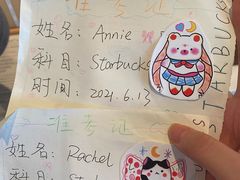 准考证
姓名: Annie
科目: Starbucks
时间: 2021.6.13
STARBUCKS
准考证
姓名: Rachel